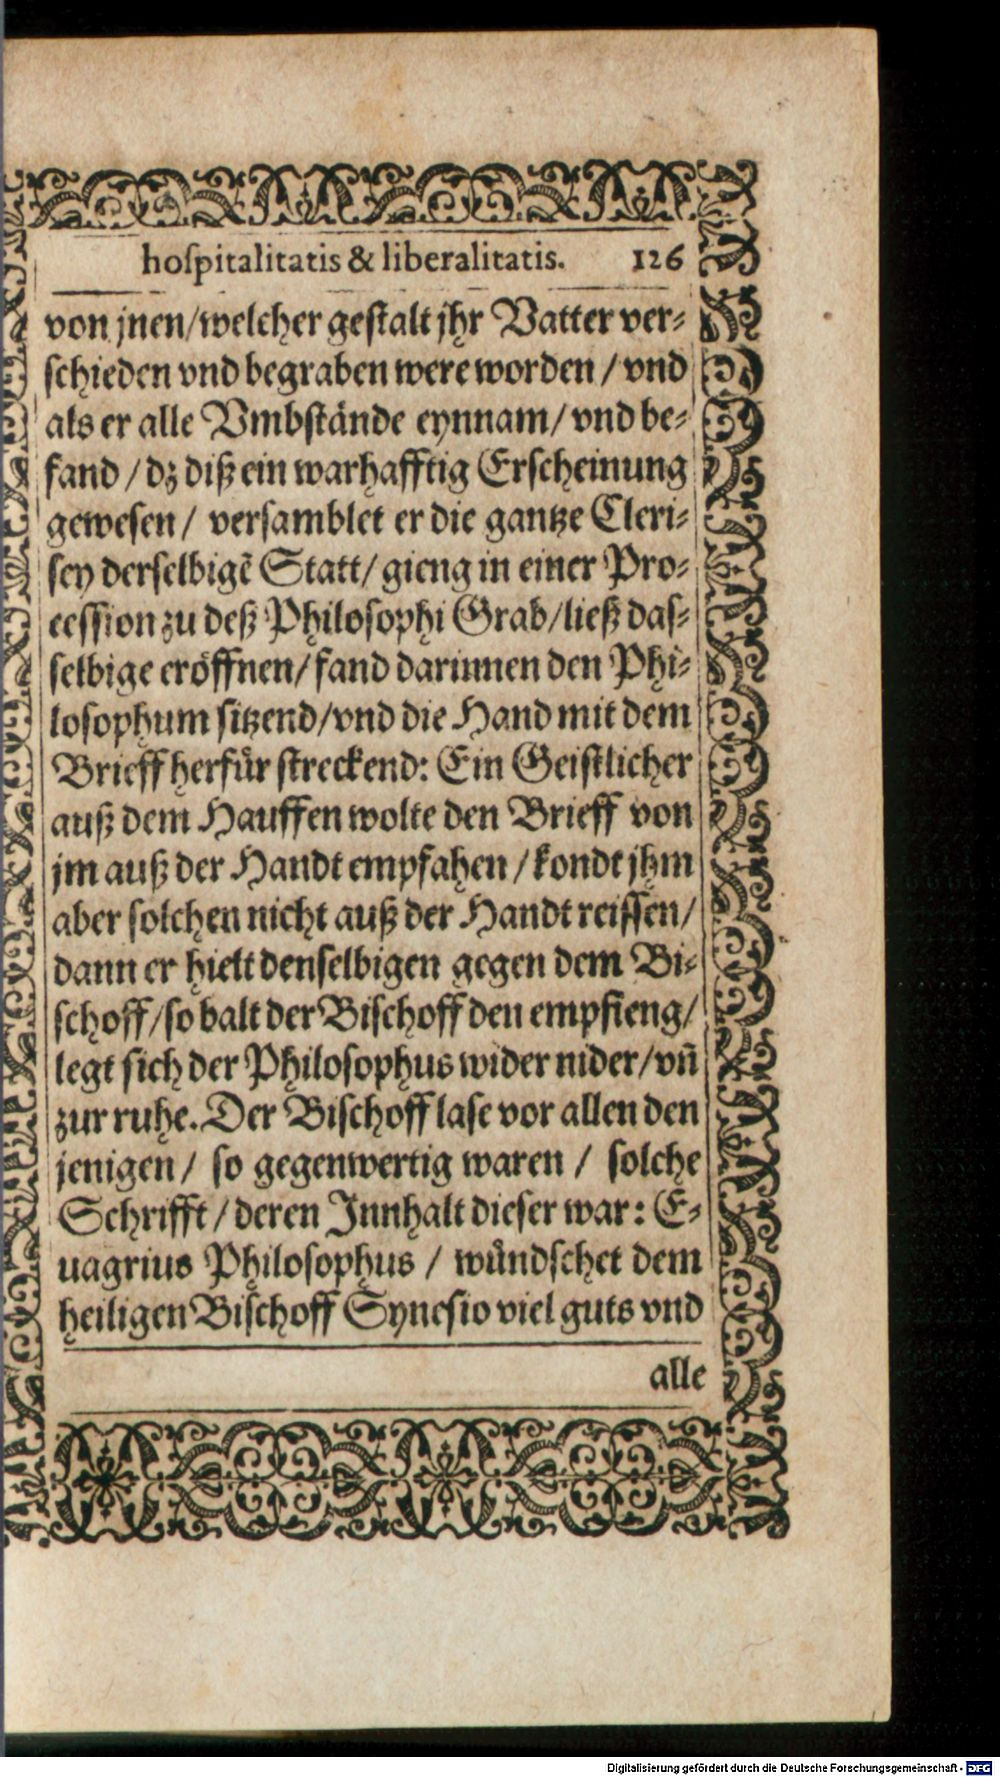 hoſpitalitatis & liberalitatis. 126
von jnen/welcher geſtalt jhr Vatter ver-
ſchieden vnd begraben were worden / vnd
als er alle Vmbſtände eynnam/ vnd be-
fand / dz diß ein warhafftig Erſcheinung
geweſen / verſamblet er die gantze Cleri-
ſey derſelbigẽ Statt/ gieng in einer Pro-
ceſſion zu deß Philoſophi Grab/ließ daſ-
ſelbige eröffnen/ fand darinnen den Phi-
loſophum ſitzend/vnd die Hand mit dem
Brieff herfür ſtreckend: Ein Geiſtlicher
auß dem Hauffen wolte den Brieff von
jm auß der Handt empfahen / kondt jhm
aber ſolchen nicht auß der Handt reiſſen/
dann er hielt denſelbigen gegen dem Bi-
ſchoff/ſo balt der Biſchoff den empfieng/
legt ſich der Philoſophus wider nider/vñ
zur ruhe. Der Biſchoff laſe vor allen den
jenigen / ſo gegenwertig waren / ſolche
Schrifft / deren Jnnhalt dieſer war: E-
uagrius Philoſophus / wündſchet dem
heiligen Biſchoff Syneſio viel guts vnd
alle
Digitalisierung gefördert durch die Deutsche Forschungsgemeinschaft - DFG